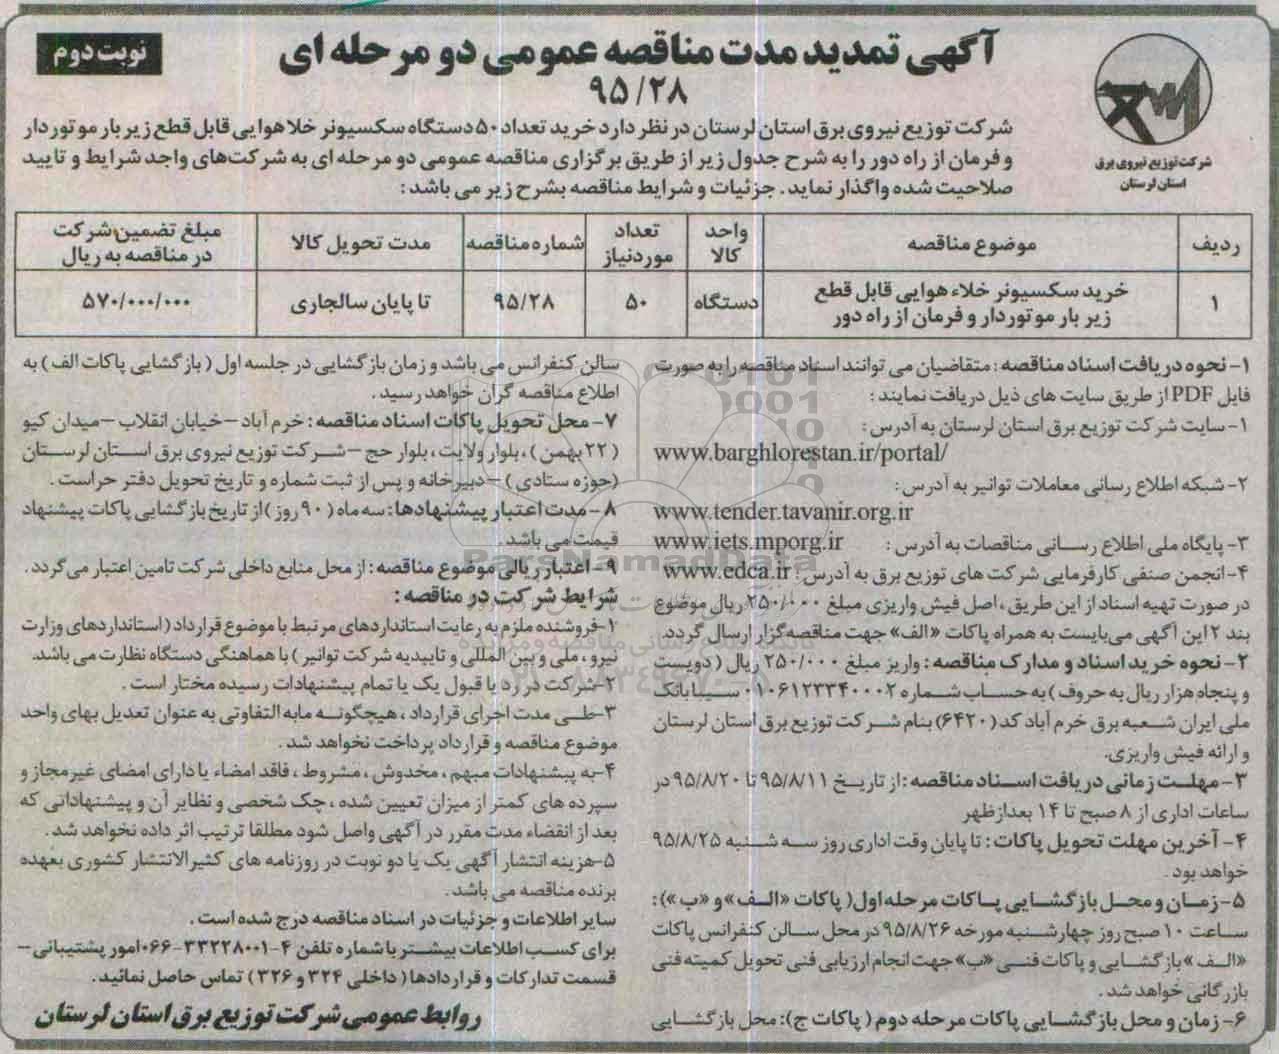 آگهی تمدید مدت مناقصه عمومی دو مرحله ای
۹۵/۲۸
نوبت دوم
شرکت توزیع نیروی برق
استان لرستان
شرکت توزیع نیروی برق استان لرستان در نظر دارد خرید تعداد ۵۰ دستگاه سکسیونر خلا هوایی قابل قطع زیر بار موتوردار
و فرمان از راه دور را به شرح جدول زیر از طریق برگزاری مناقصه عمومی دو مرحله ای به شرکت‌های واجد شرایط و تایید
صلاحیت شده واگذار نماید. جزئیات و شرایط مناقصه بشرح زیر می باشد:
ردیف موضوع مناقصه واحد کالا تعداد موردنیاز شماره مناقصه مدت تحویل کالا مبلغ تضمین شرکت در مناقصه به ریال
۱ خرید سکسیونر خلاء هوایی قابل قطع زیر بار موتوردار و فرمان از راه دور دستگاه ۵۰ ۹۵/۲۸ تا پایان سالجاری ۵۷۰/۰۰۰/۰۰۰
۱- نحوه دریافت اسناد مناقصه : متقاضیان می توانند اسناد مناقصه را به صورت
فایل PDF از طریق سایت های ذیل دریافت نمایند :
۱- سایت شرکت توزیع برق استان لرستان به آدرس :
www.barghlorestan.ir/portal/
۲- شبکه اطلاع رسانی معاملات توانیر به آدرس :
www.tender.tavanir.org.ir
۳- پایگاه ملی اطلاع رسانی مناقصات به آدرس : www.iets.mporg.ir
۴- انجمن صنفی کارفرمایی شرکت های توزیع برق به آدرس : www.edca.ir
در صورت تهیه اسناد از این طریق ، اصل فیش واریزی مبلغ ۲۵۰/۰۰۰ ریال موضوع
بند ۲ این آگهی می‌بایست به همراه پاکات «الف» جهت مناقصه‌گزار ارسال گردد.
۲- نحوه خرید اسناد و مدارک مناقصه : واریز مبلغ ۲۵۰/۰۰۰ ریال ( دویست
و پنجاه هزار ریال به حروف ) به حساب شماره ۰۱۰۶۱۲۳۳۴۰۰۰۲ سیبا بانک
ملی ایران شعبه برق خرم آباد کد (۶۴۲۰) بنام شرکت توزیع برق استان لرستان
و ارائه فیش واریزی.
۳- مهلت زمانی دریافت اسناد مناقصه : از تاریخ ۹۵/۸/۱۱ تا ۹۵/۸/۲۰ در
ساعات اداری از ۸ صبح تا ۱۴ بعدازظهر
۴- آخرین مهلت تحویل پاکات : تا پایان وقت اداری روز سه شنبه ۹۵/۸/۲۵
خواهد بود .
۵- زمان و محل بازگشایی پاکات مرحله اول( پاکات «الف» و «ب»):
ساعت ۱۰ صبح روز چهارشنبه مورخه ۹۵/۸/۲۶ در محل سالن کنفرانس پاکات
«الف» بازگشایی و پاکات فنی «ب» جهت انجام ارزیابی فنی تحویل کمیته فنی
بازرگانی خواهد شد .
۶- زمان و محل بازگشایی پاکات مرحله دوم ( پاکات ج): محل بازگشایی
سالن کنفرانس می باشد و زمان بازگشایی در جلسه اول ( بازگشایی پاکات الف ) به
اطلاع مناقصه گران خواهد رسید .
۷- محل تحویل پاکات اسناد مناقصه : خرم آباد – خیابان انقلاب – میدان کیو
( ۲۲ بهمن ) ، بلوار ولایت ، بلوار حج – شرکت توزیع نیروی برق استان لرستان
(حوزه ستادی ) – دبیرخانه و پس از ثبت شماره و تاریخ تحویل دفتر حراست .
۸- مدت اعتبار پیشنهادها : سه ماه ( ۹۰ روز ) از تاریخ بازگشایی پاکات پیشنهاد
قیمت می باشد .
۹- اعتبار ریالی موضوع مناقصه : از محل منابع داخلی شرکت تامین اعتبار می‌گردد .
شرایط شرکت در مناقصه :
۱- فروشنده ملزم به رعایت استانداردهای مرتبط با موضوع قرارداد ( استانداردهای وزارت
نیرو ، ملی و بین المللی و تاییدیه شرکت توانیر ) با هماهنگی دستگاه نظارت می باشد.
۲- شرکت در رد یا قبول یک یا تمام پیشنهادات رسیده مختار است .
۳- طی مدت اجرای قرارداد ، هیچگونه مابه التفاوتی به عنوان تعدیل بهای واحد
موضوع مناقصه و قرارداد پرداخت نخواهد شد .
۴- به پیشنهادات مبهم ، مخدوش ، مشروط ، فاقد امضاء یا دارای امضای غیرمجاز و
سپرده های کمتر از میزان تعیین شده ، چک شخصی و نظایر آن و پیشنهاداتی که
بعد از انقضاء مدت مقرر در آگهی واصل شود مطلقا ترتیب اثر داده نخواهد شد .
۵- هزینه انتشار آگهی یک یا دو نوبت در روزنامه های کثیرالانتشار کشوری بعهده
برنده مناقصه می باشد .
سایر اطلاعات و جزئیات در اسناد مناقصه درج شده است .
برای کسب اطلاعات بیشتر با شماره تلفن ۴-۳۳۲۲۸۰۰۱-۰۶۶ امور پشتیبانی –
قسمت تدارکات و قراردادها ( داخلی ۳۲۴ و ۳۲۶ ) تماس حاصل نمائید .
روابط عمومی شرکت توزیع برق استان لرستان
ParsNamadData